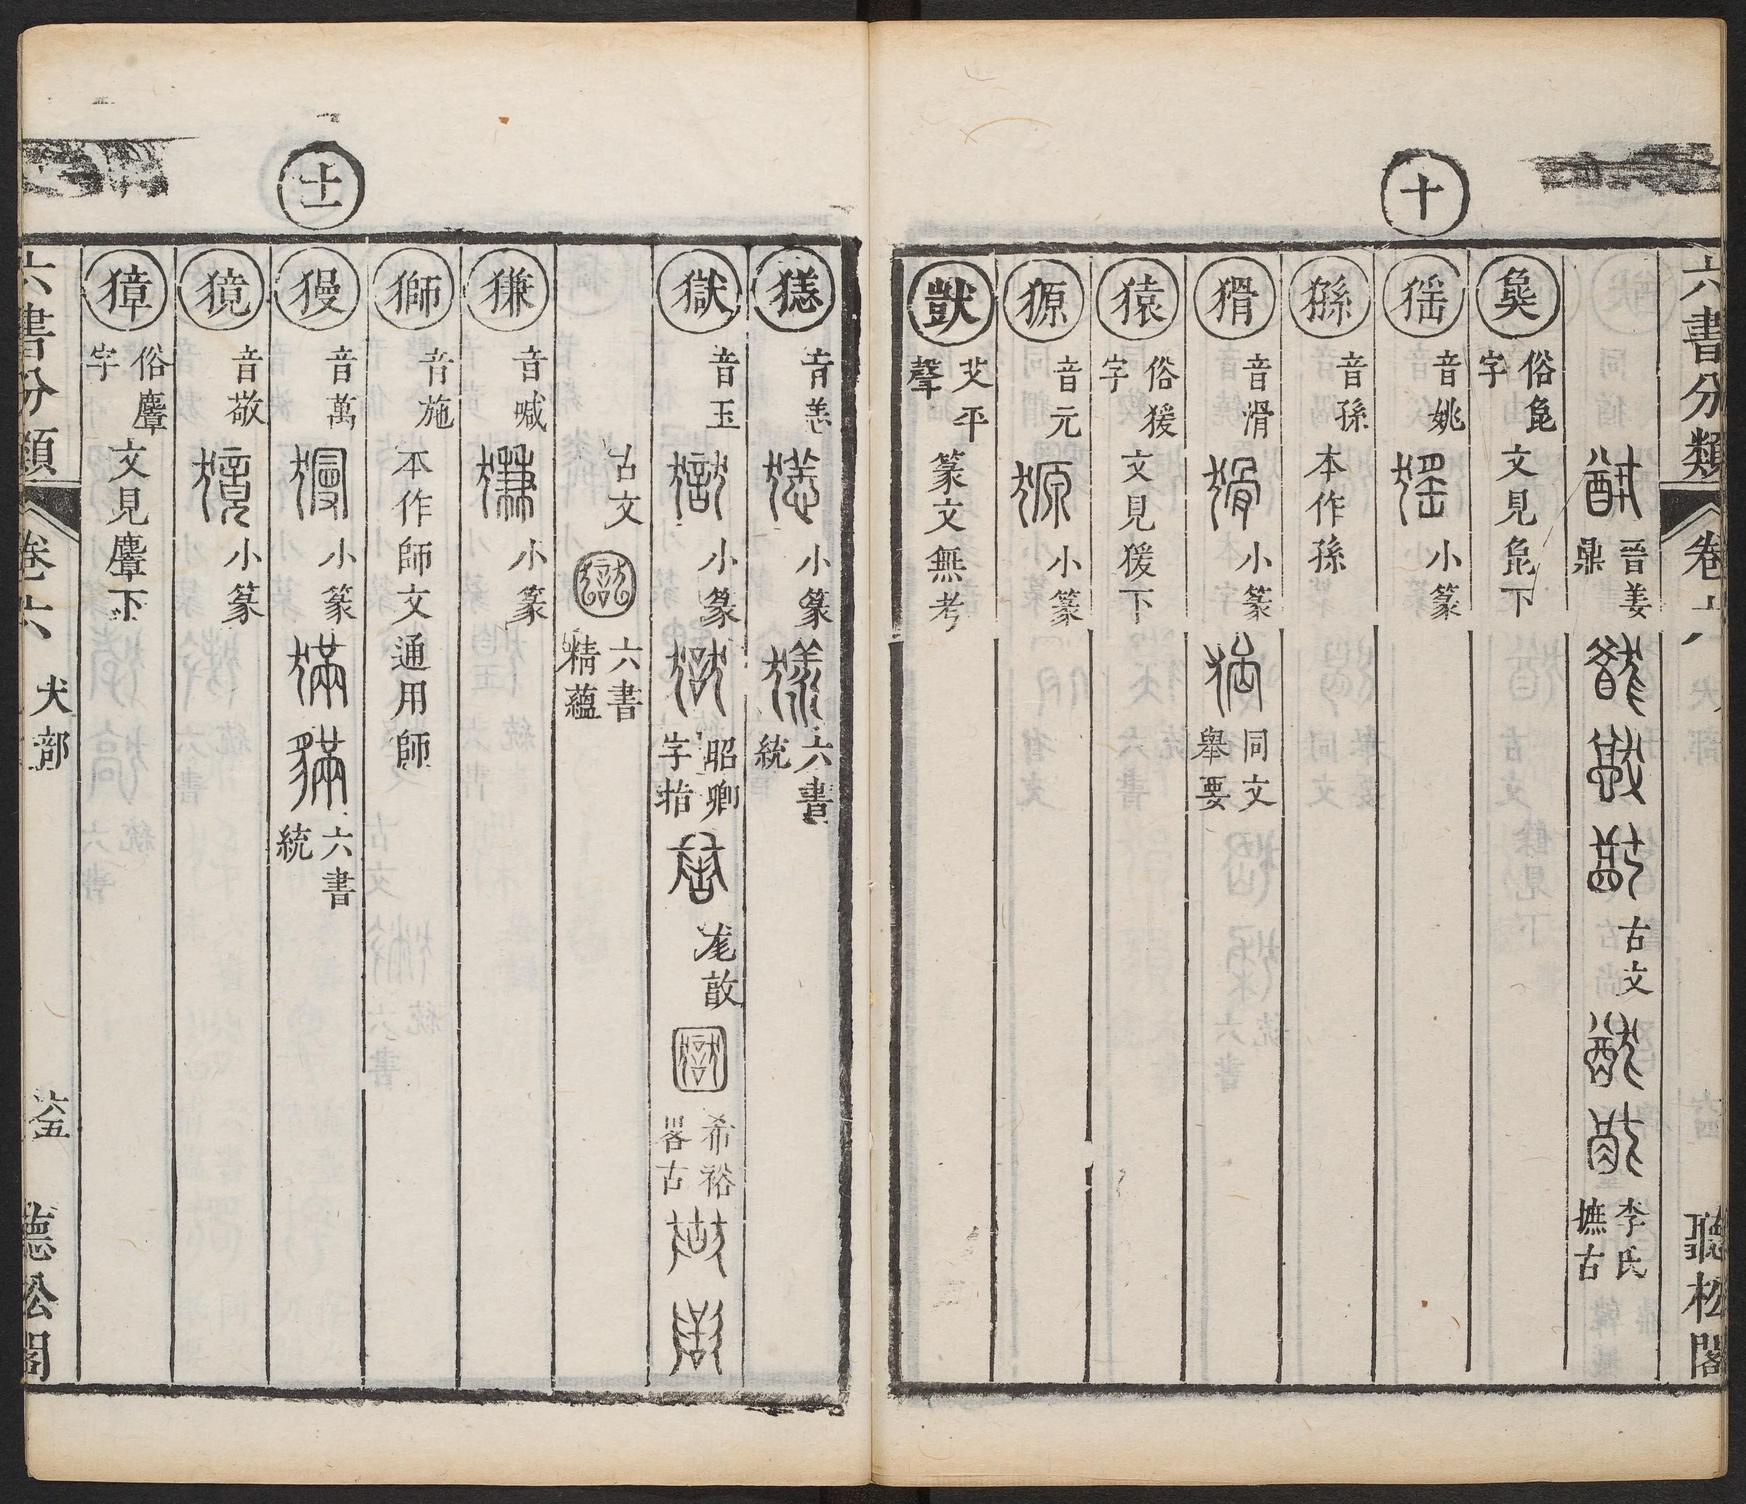 六書分類 卷六 聽松閣
十
晉姜鼎 古文 李氏摭古
俗㲋字 文見㲋下
猺 音姚 小篆
猻 音孫 本作孫
猾 音滑 小篆 同文舉要
猿 俗猨字 文見猨下
獂 音元 小篆
獃 艾平聲 篆文無考
十一
音恙 小篆 六書統
獄 音玉 小篆 昭卿字指 敔 希裕畧古
古文 六書精蘊
㺌 音喊 小篆
獅 音施 本作師 文通用師
獌 音萬 小篆 六書統
獍 音敬 小篆
獐 俗麞字 文見麞下
六書分類 卷六 犬部 六五 聽松閣